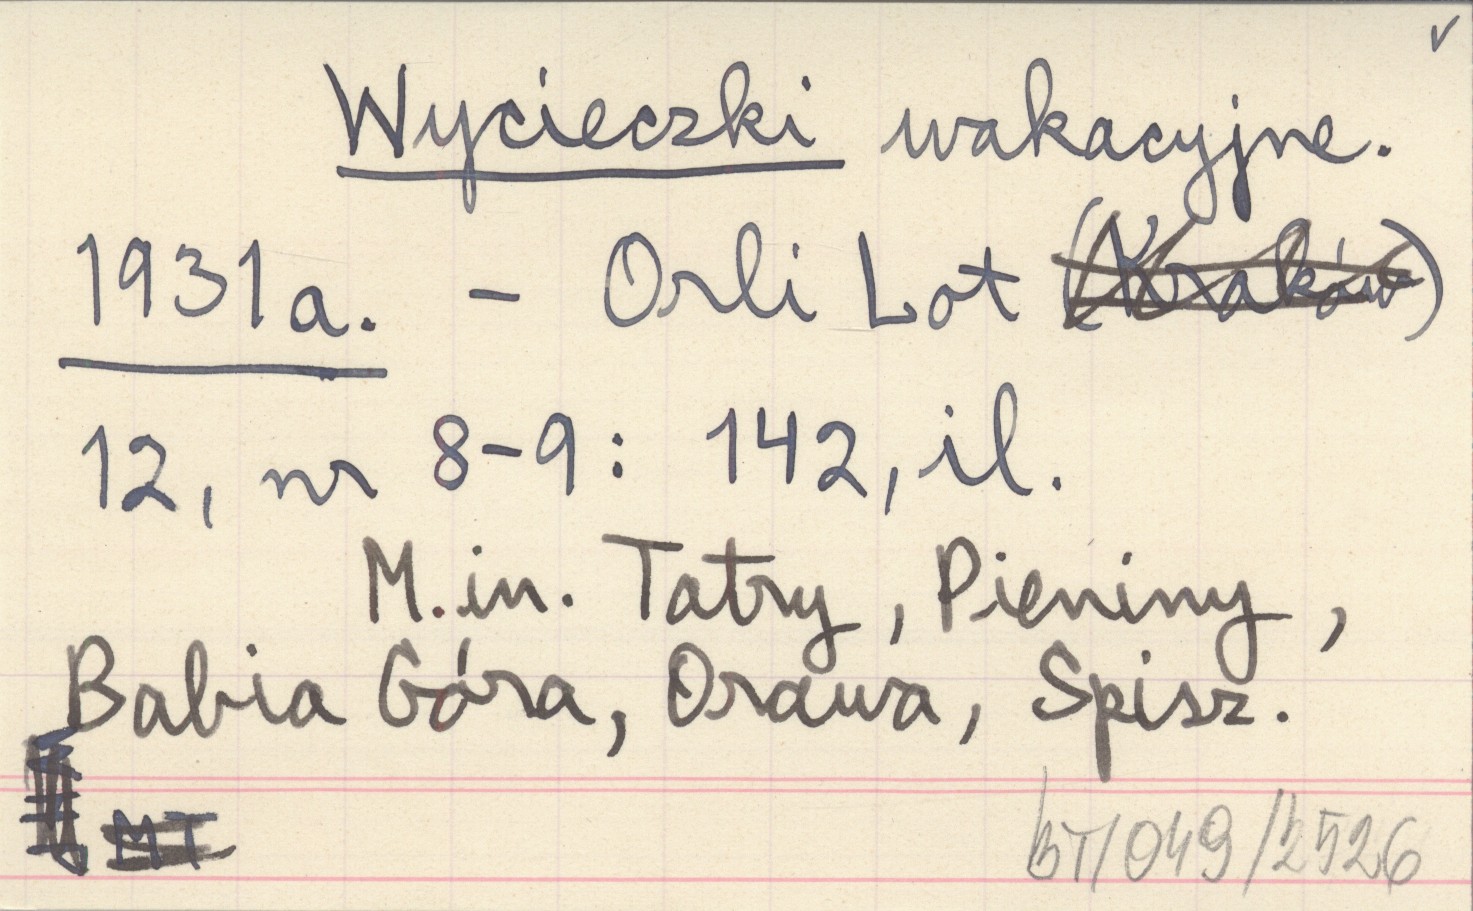 Wycieczki wakacyjne.
1931a. - Orli Lot (Kraków)
12, nr 8-9: 142, il.
M.in. Tatry, Pieniny,
Babia Góra, Orawa, Spisz.
MT
BT/049/2526